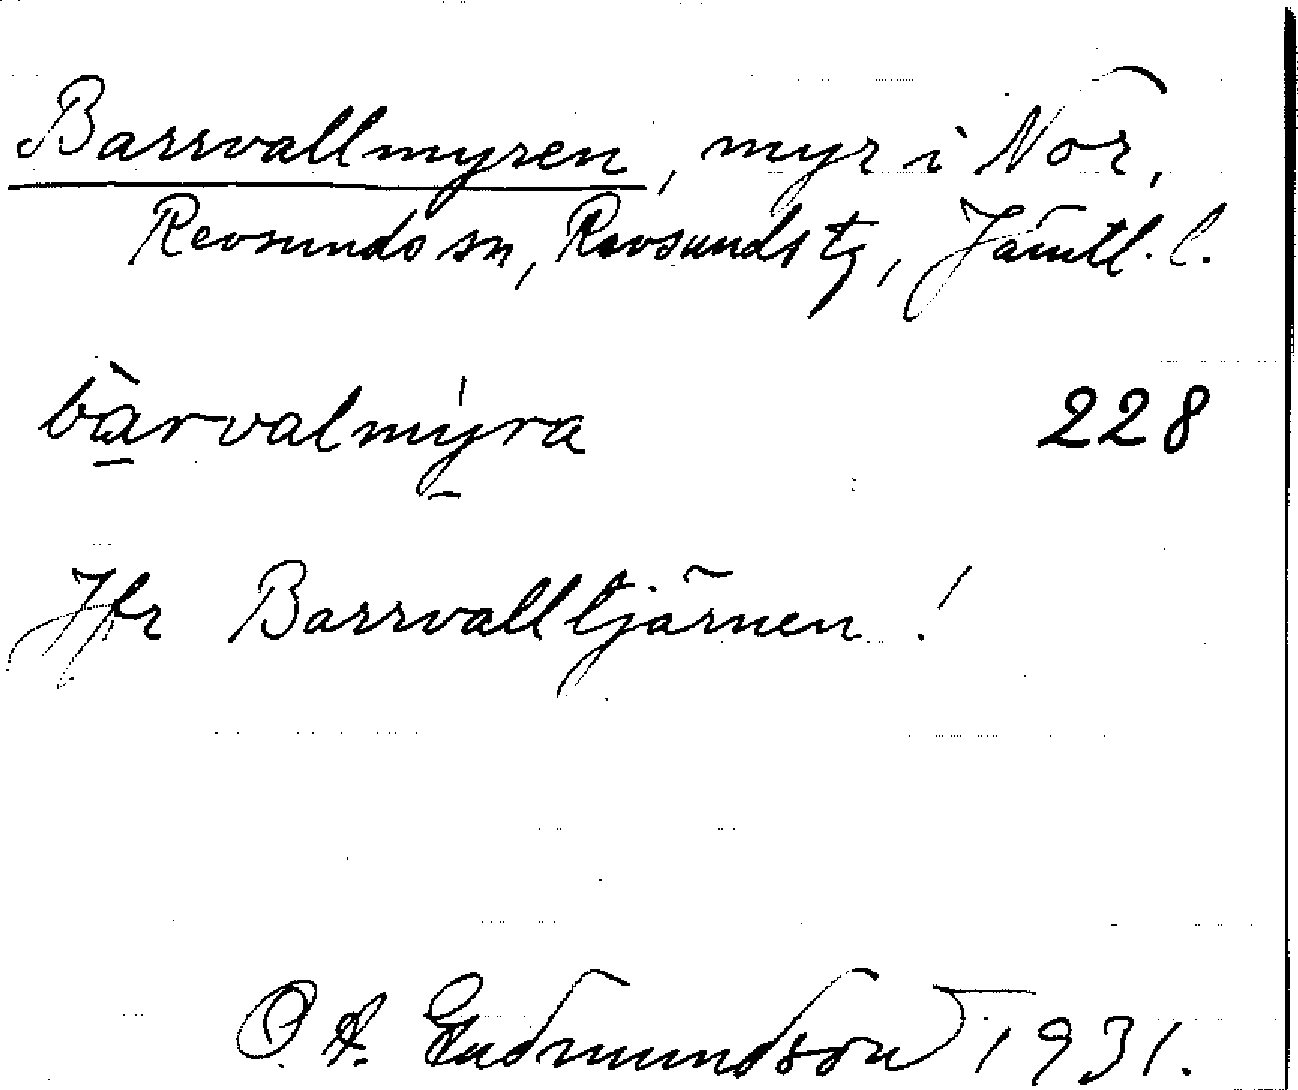 Barrvallmyren, myr i Nor,
Revsunds sn, Revsunds tg, Jämtl. l.
bàrvalmýra 228
Jfr Barrvalltjärnen!
O. A. Gudmundson 1931.